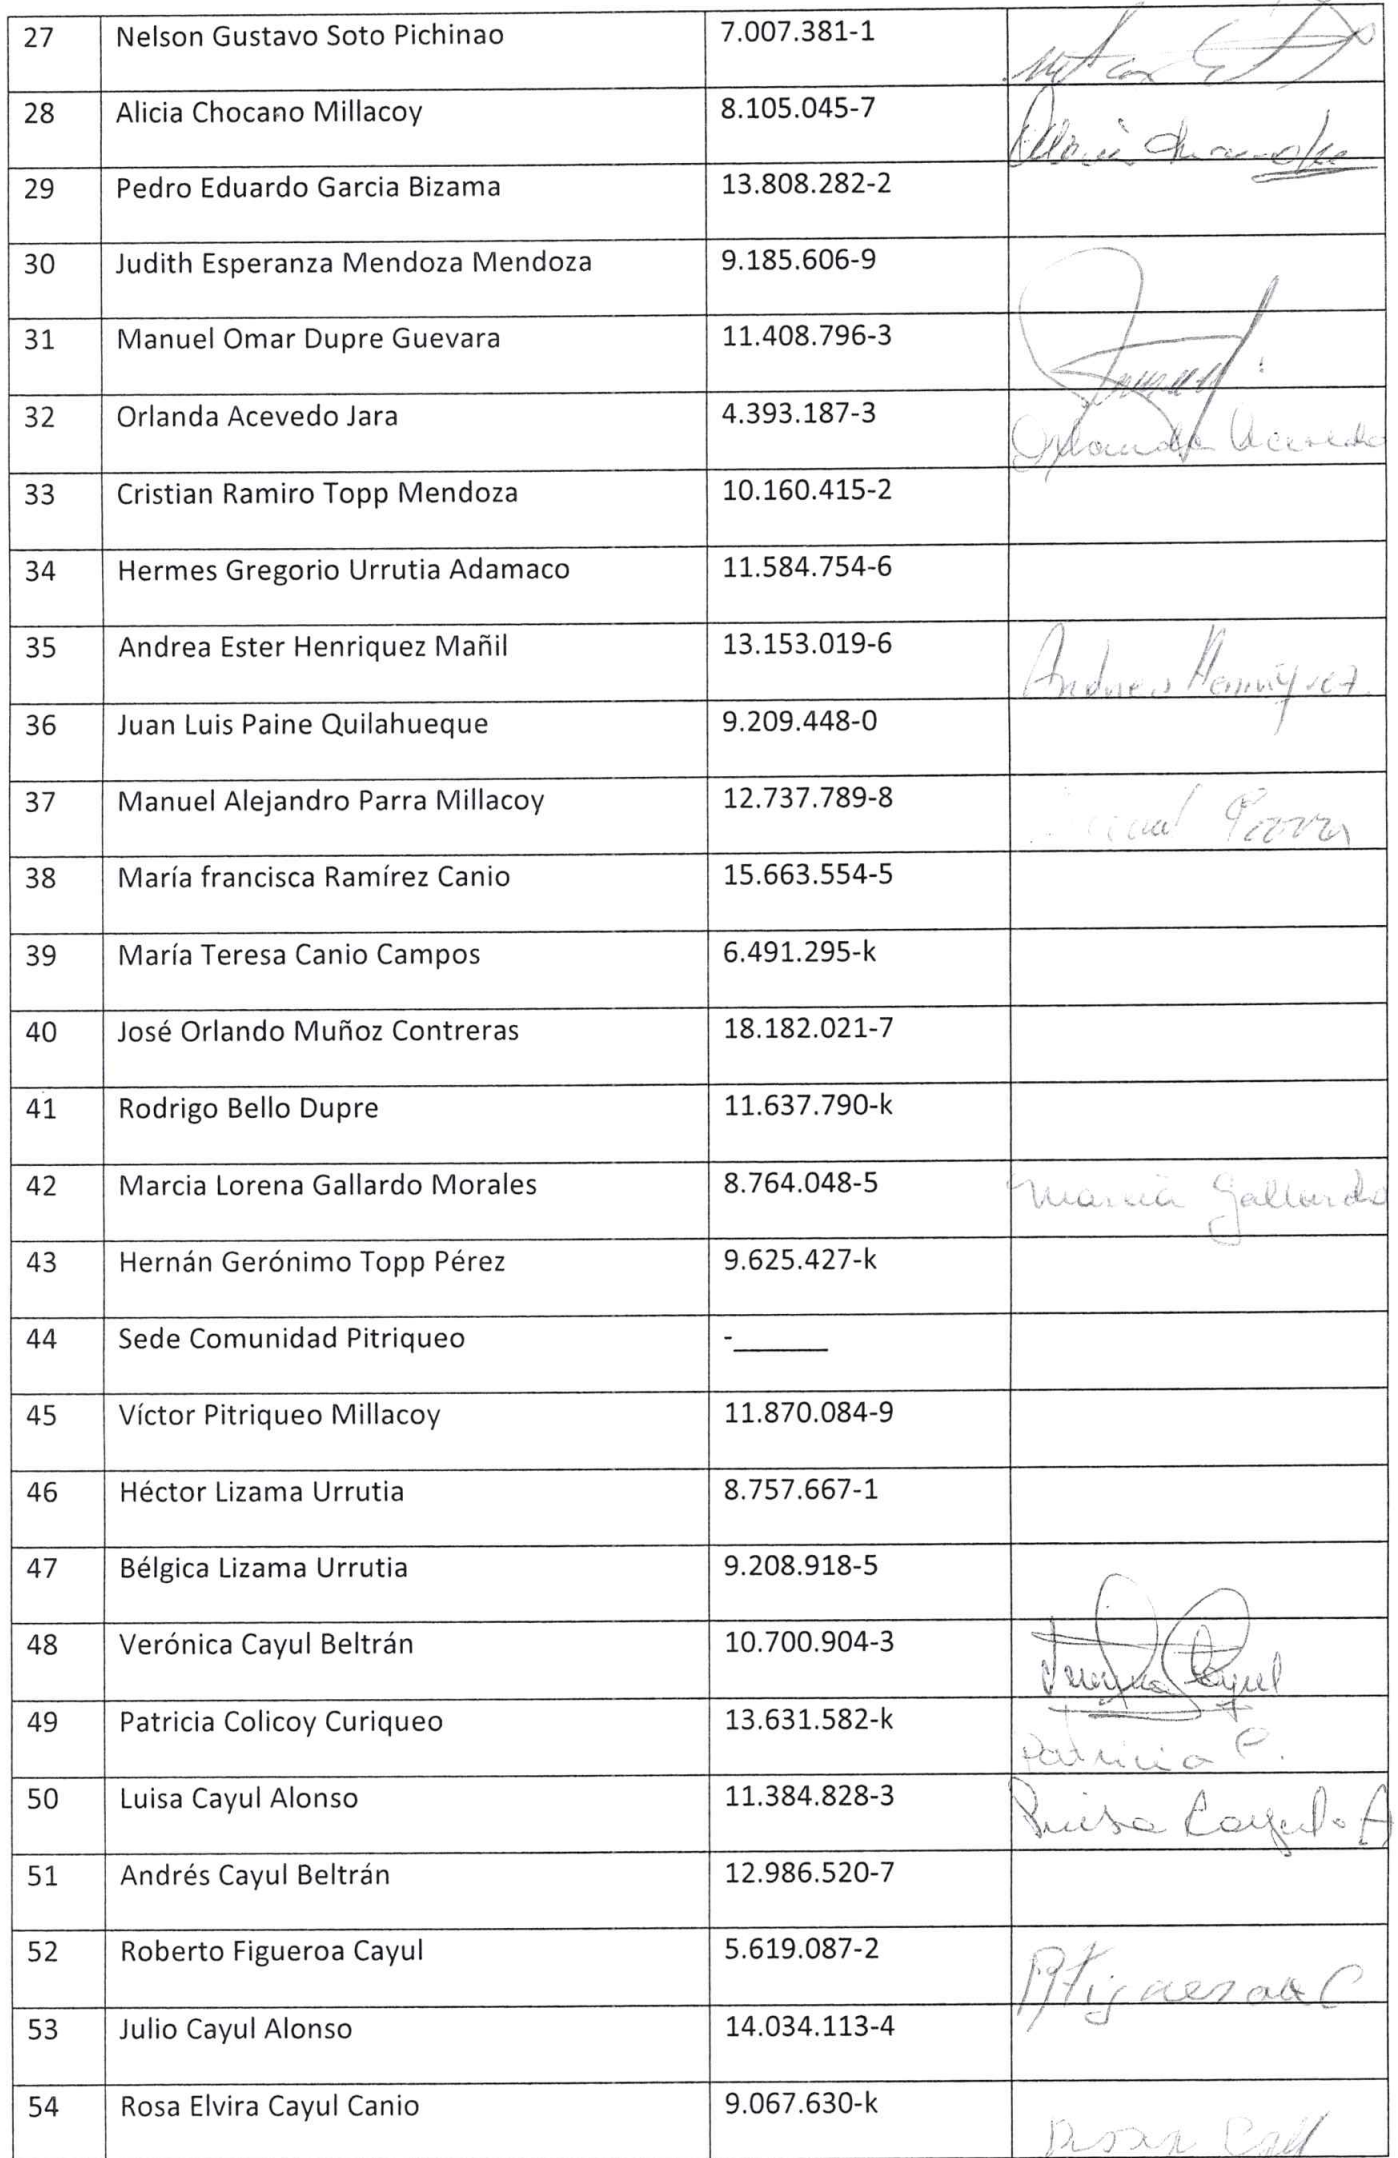 27 Nelson Gustavo Soto Pichinao 7.007.381-1
28 Alicia Chocano Millacoy 8.105.045-7
29 Pedro Eduardo Garcia Bizama 13.808.282-2
30 Judith Esperanza Mendoza Mendoza 9.185.606-9
31 Manuel Omar Dupre Guevara 11.408.796-3
32 Orlanda Acevedo Jara 4.393.187-3 Orlanda Acevedo
33 Cristian Ramiro Topp Mendoza 10.160.415-2
34 Hermes Gregorio Urrutia Adamaco 11.584.754-6
35 Andrea Ester Henriquez Mañil 13.153.019-6 Andrea Henriquez
36 Juan Luis Paine Quilahueque 9.209.448-0
37 Manuel Alejandro Parra Millacoy 12.737.789-8 Parra
38 María francisca Ramírez Canio 15.663.554-5
39 María Teresa Canio Campos 6.491.295-k
40 José Orlando Muñoz Contreras 18.182.021-7
41 Rodrigo Bello Dupre 11.637.790-k
42 Marcia Lorena Gallardo Morales 8.764.048-5 Marcia Gallardo
43 Hernán Gerónimo Topp Pérez 9.625.427-k
44 Sede Comunidad Pitriqueo -______
45 Víctor Pitriqueo Millacoy 11.870.084-9
46 Héctor Lizama Urrutia 8.757.667-1
47 Bélgica Lizama Urrutia 9.208.918-5
48 Verónica Cayul Beltrán 10.700.904-3 Cayul
49 Patricia Colicoy Curiqueo 13.631.582-k Patricia C.
50 Luisa Cayul Alonso 11.384.828-3 Luisa Cayul A
51 Andrés Cayul Beltrán 12.986.520-7
52 Roberto Figueroa Cayul 5.619.087-2 RFigueroa C
53 Julio Cayul Alonso 14.034.113-4
54 Rosa Elvira Cayul Canio 9.067.630-k Rosa